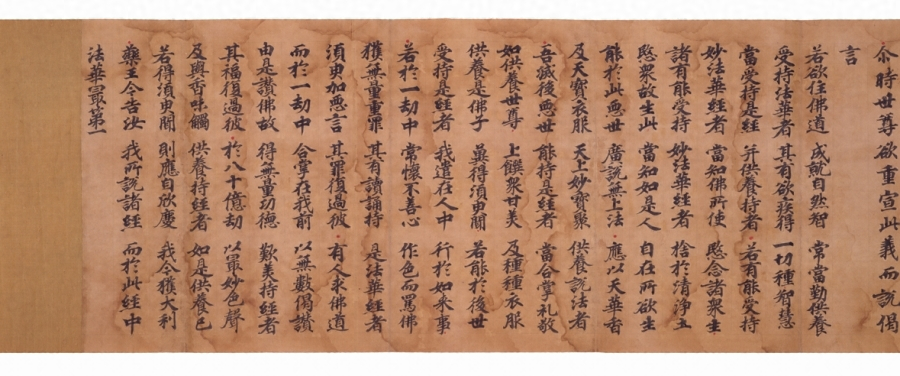 尒時世尊欲重宣此義而說偈
言
若欲住佛道 成就自然智 常當勤供養
受持法華者 其有欲疾得 一切種智慧
當受持是經 并供養持者 若有能受持
妙法華經者 當知佛所使 愍念諸衆生
諸有能受持 妙法華經者 捨於清淨土
愍衆故生此 當知如是人 自在所欲生
能於此惡世 廣說無上法 應以天華香
及天寶衣服 天上妙寶聚 供養說法者
吾滅後惡世 能持是經者 當合掌礼敬
如供養世尊 上饌衆甘美 及種種衣服
供養是佛子 冀得須臾聞 若能於後世
受持是經者 我遣在人中 行於如來事
若於一劫中 常懷不善心 作色而罵佛
獲無量重罪 其有讀誦持 是法華經者
須臾加惡言 其罪復過彼 有人求佛道
而於一劫中 合掌在我前 以無數偈讚
由是讚佛故 得無量功德 歎美持經者
其福復過彼 於八十億劫 以冣妙色聲
及與香味觸 供養持經者 如是供養已
若得須臾聞 則應自欣慶 我今獲大利
藥王今告汝 我所說諸經 而於此經中
法華冣第一